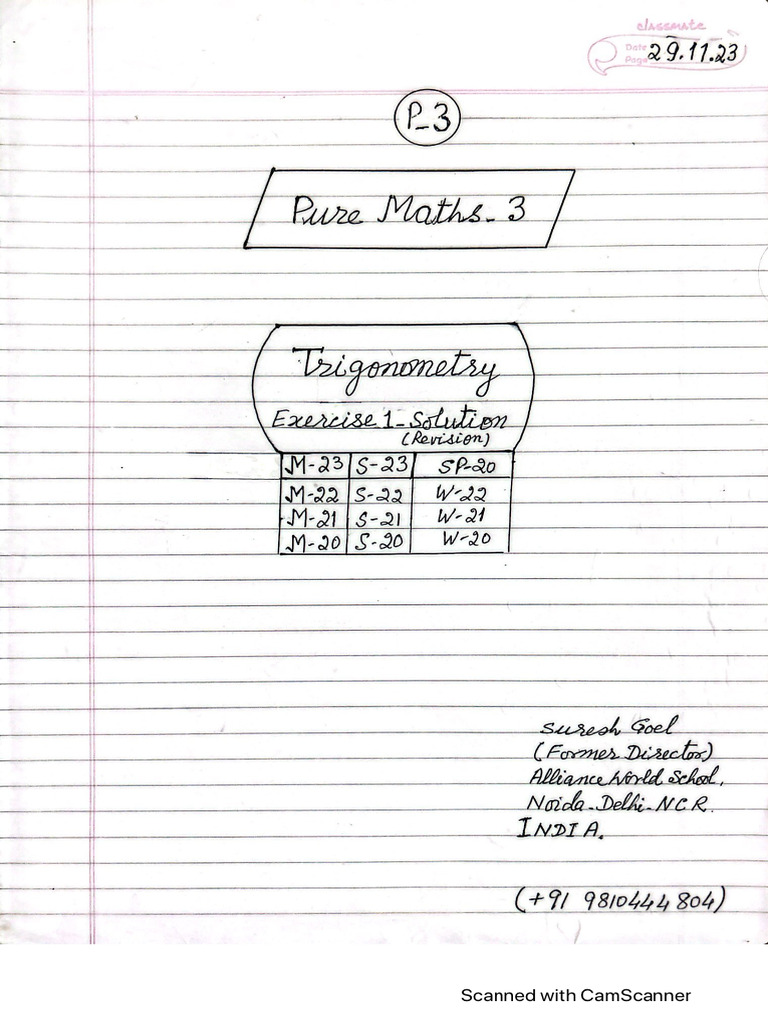 classmate
Date 29.11.23
Page
P-3
Pure Maths-3
Trigonometry
Exercise 1-Solution
(Revision)
M-23 S-23 SP-20
M-22 S-22 W-22
M-21 S-21 W-21
M-20 S-20 W-20
Suresh Goel
(Former Director)
Alliance World School,
Noida-Delhi-NCR.
INDIA.
(+91 9810444804)
Scanned with CamScanner